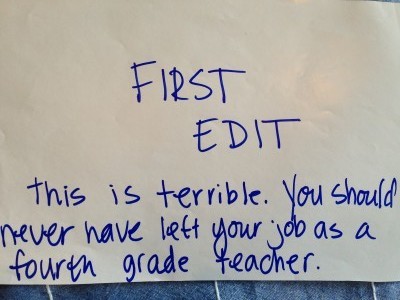 FIRST
EDIT
this is terrible. You should
never have left your job as a
fourth grade teacher.